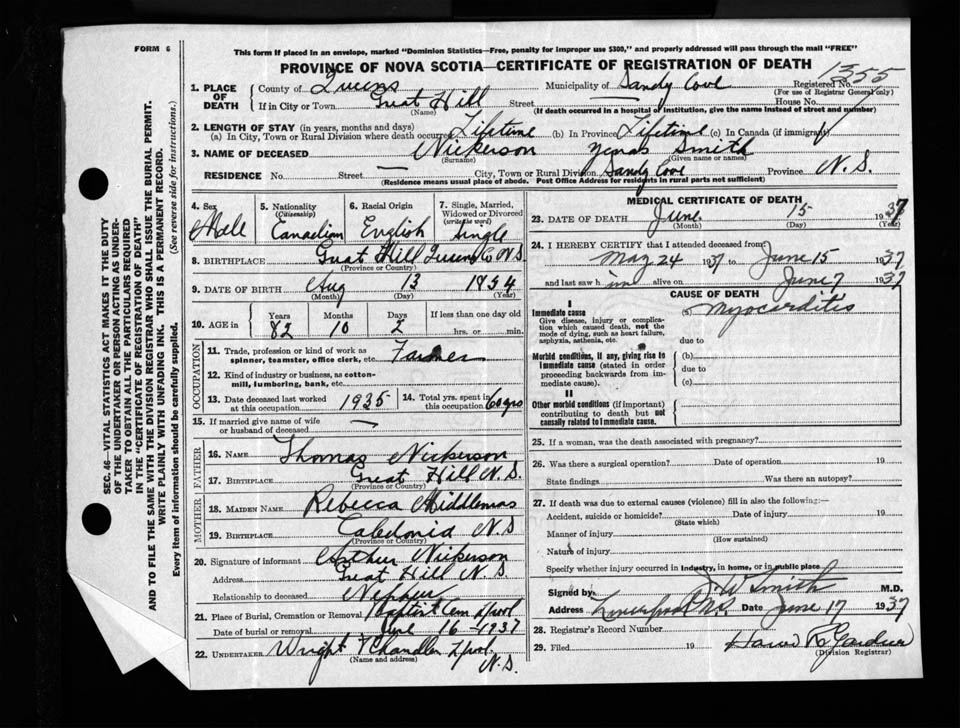 FORM 6
This form if placed in an envelope, marked "Dominion Statistics—Free, penalty for improper use $300," and properly addressed will pass through the mail "FREE"
PROVINCE OF NOVA SCOTIA—CERTIFICATE OF REGISTRATION OF DEATH
1355
1. PLACE OF DEATH County of Queens Municipality of Sandy Cove Registered No.
(For use of Registrar General only)
If in City or Town Great Hill Street House No.
(Name) (If death occurred in a hospital of institution, give the name instead of street and number)
2. LENGTH OF STAY (in years, months and days)
(a) In City, Town or Rural Division where death occurred Lifetime (b) In Province Lifetime (c) In Canada (if immigrant)
3. NAME OF DECEASED Nickerson Smith
(Surname) (Given name or names)
RESIDENCE No. Street — City, Town or Rural Division Sandy Cove Province N.S.
(Residence means usual place of abode. Post Office Address for residents in rural parts not sufficient)
4. Sex Male
5. Nationality (Citizenship) Canadian
6. Racial Origin English
7. Single, Married, Widowed or Divorced (write the word) Single
8. BIRTHPLACE Great Hill Queens Co N.S.
(Province or Country)
9. DATE OF BIRTH Aug 13 1854
(Month) (Day) (Year)
10. AGE in Years Months Days If less than one day old
82 10 2 hrs. or min.
OCCUPATION
11. Trade, profession or kind of work as spinner, teamster, office clerk, etc. Farmer
12. Kind of industry or business, as cotton-mill, lumbering, bank, etc.
13. Date deceased last worked at this occupation 1935 14. Total yrs. spent in this occupation 60 yrs
15. If married give name of wife or husband of deceased —
FATHER
16. NAME Thomas Nickerson
17. BIRTHPLACE Great Hill N.S.
(Province or Country)
MOTHER
18. MAIDEN NAME Rebecca Middlemas
19. BIRTHPLACE Caledonia N.S
(Province or Country)
20. Signature of informant Arthur Nickerson
Address Great Hill N.S.
Relationship to deceased Nephew
21. Place of Burial, Cremation or Removal Baptist Cem L'pool
Date of burial or removal June 16 - 1937
22. UNDERTAKER Wright & Chandler L'pool N.S.
(Name and address)
MEDICAL CERTIFICATE OF DEATH
23. DATE OF DEATH June 15 1937
(Month) (Day) (Year)
24. I HEREBY CERTIFY that I attended deceased from:
May 24 1937 to June 15 1937
and last saw him alive on June 7 1937
CAUSE OF DEATH
I
Immediate cause (a) Myocarditis
Give disease, injury or complication which caused death, not the mode of dying, such as heart failure, asphyxia, asthenia, etc.
due to
Morbid conditions, if any, giving rise to immediate cause (stated in order proceeding backwards from immediate cause).
(b)
due to
(c)
II
Other morbid conditions (if important) contributing to death but not causally related to immediate cause.
25. If a woman, was the death associated with pregnancy?
26. Was there a surgical operation? Date of operation 19
State findings Was there an autopsy?
27. If death was due to external causes (violence) fill in also the following:—
Accident, suicide or homicide? Date of injury 19
(State which)
Manner of injury
(How sustained)
Nature of injury
Specify whether injury occurred in industry, in home, or in public place
Signed by J. W Smith M.D.
Address Liverpool N.S. Date June 17 1937
28. Registrar's Record Number
29. Filed 19 Gardner
(Division Registrar)
SEC. 46—VITAL STATISTICS ACT MAKES IT THE DUTY
OF THE UNDERTAKER OR PERSON ACTING AS UNDER-
TAKER TO OBTAIN ALL THE PARTICULARS REQUIRED
IN THE "CERTIFICATE OF REGISTRATION OF DEATH"
AND TO FILE THE SAME WITH THE DIVISION REGISTRAR WHO SHALL ISSUE THE BURIAL PERMIT.
WRITE PLAINLY WITH UNFADING INK. THIS IS A PERMANENT RECORD.
Every item of information should be carefully supplied. (See reverse side for instructions.)